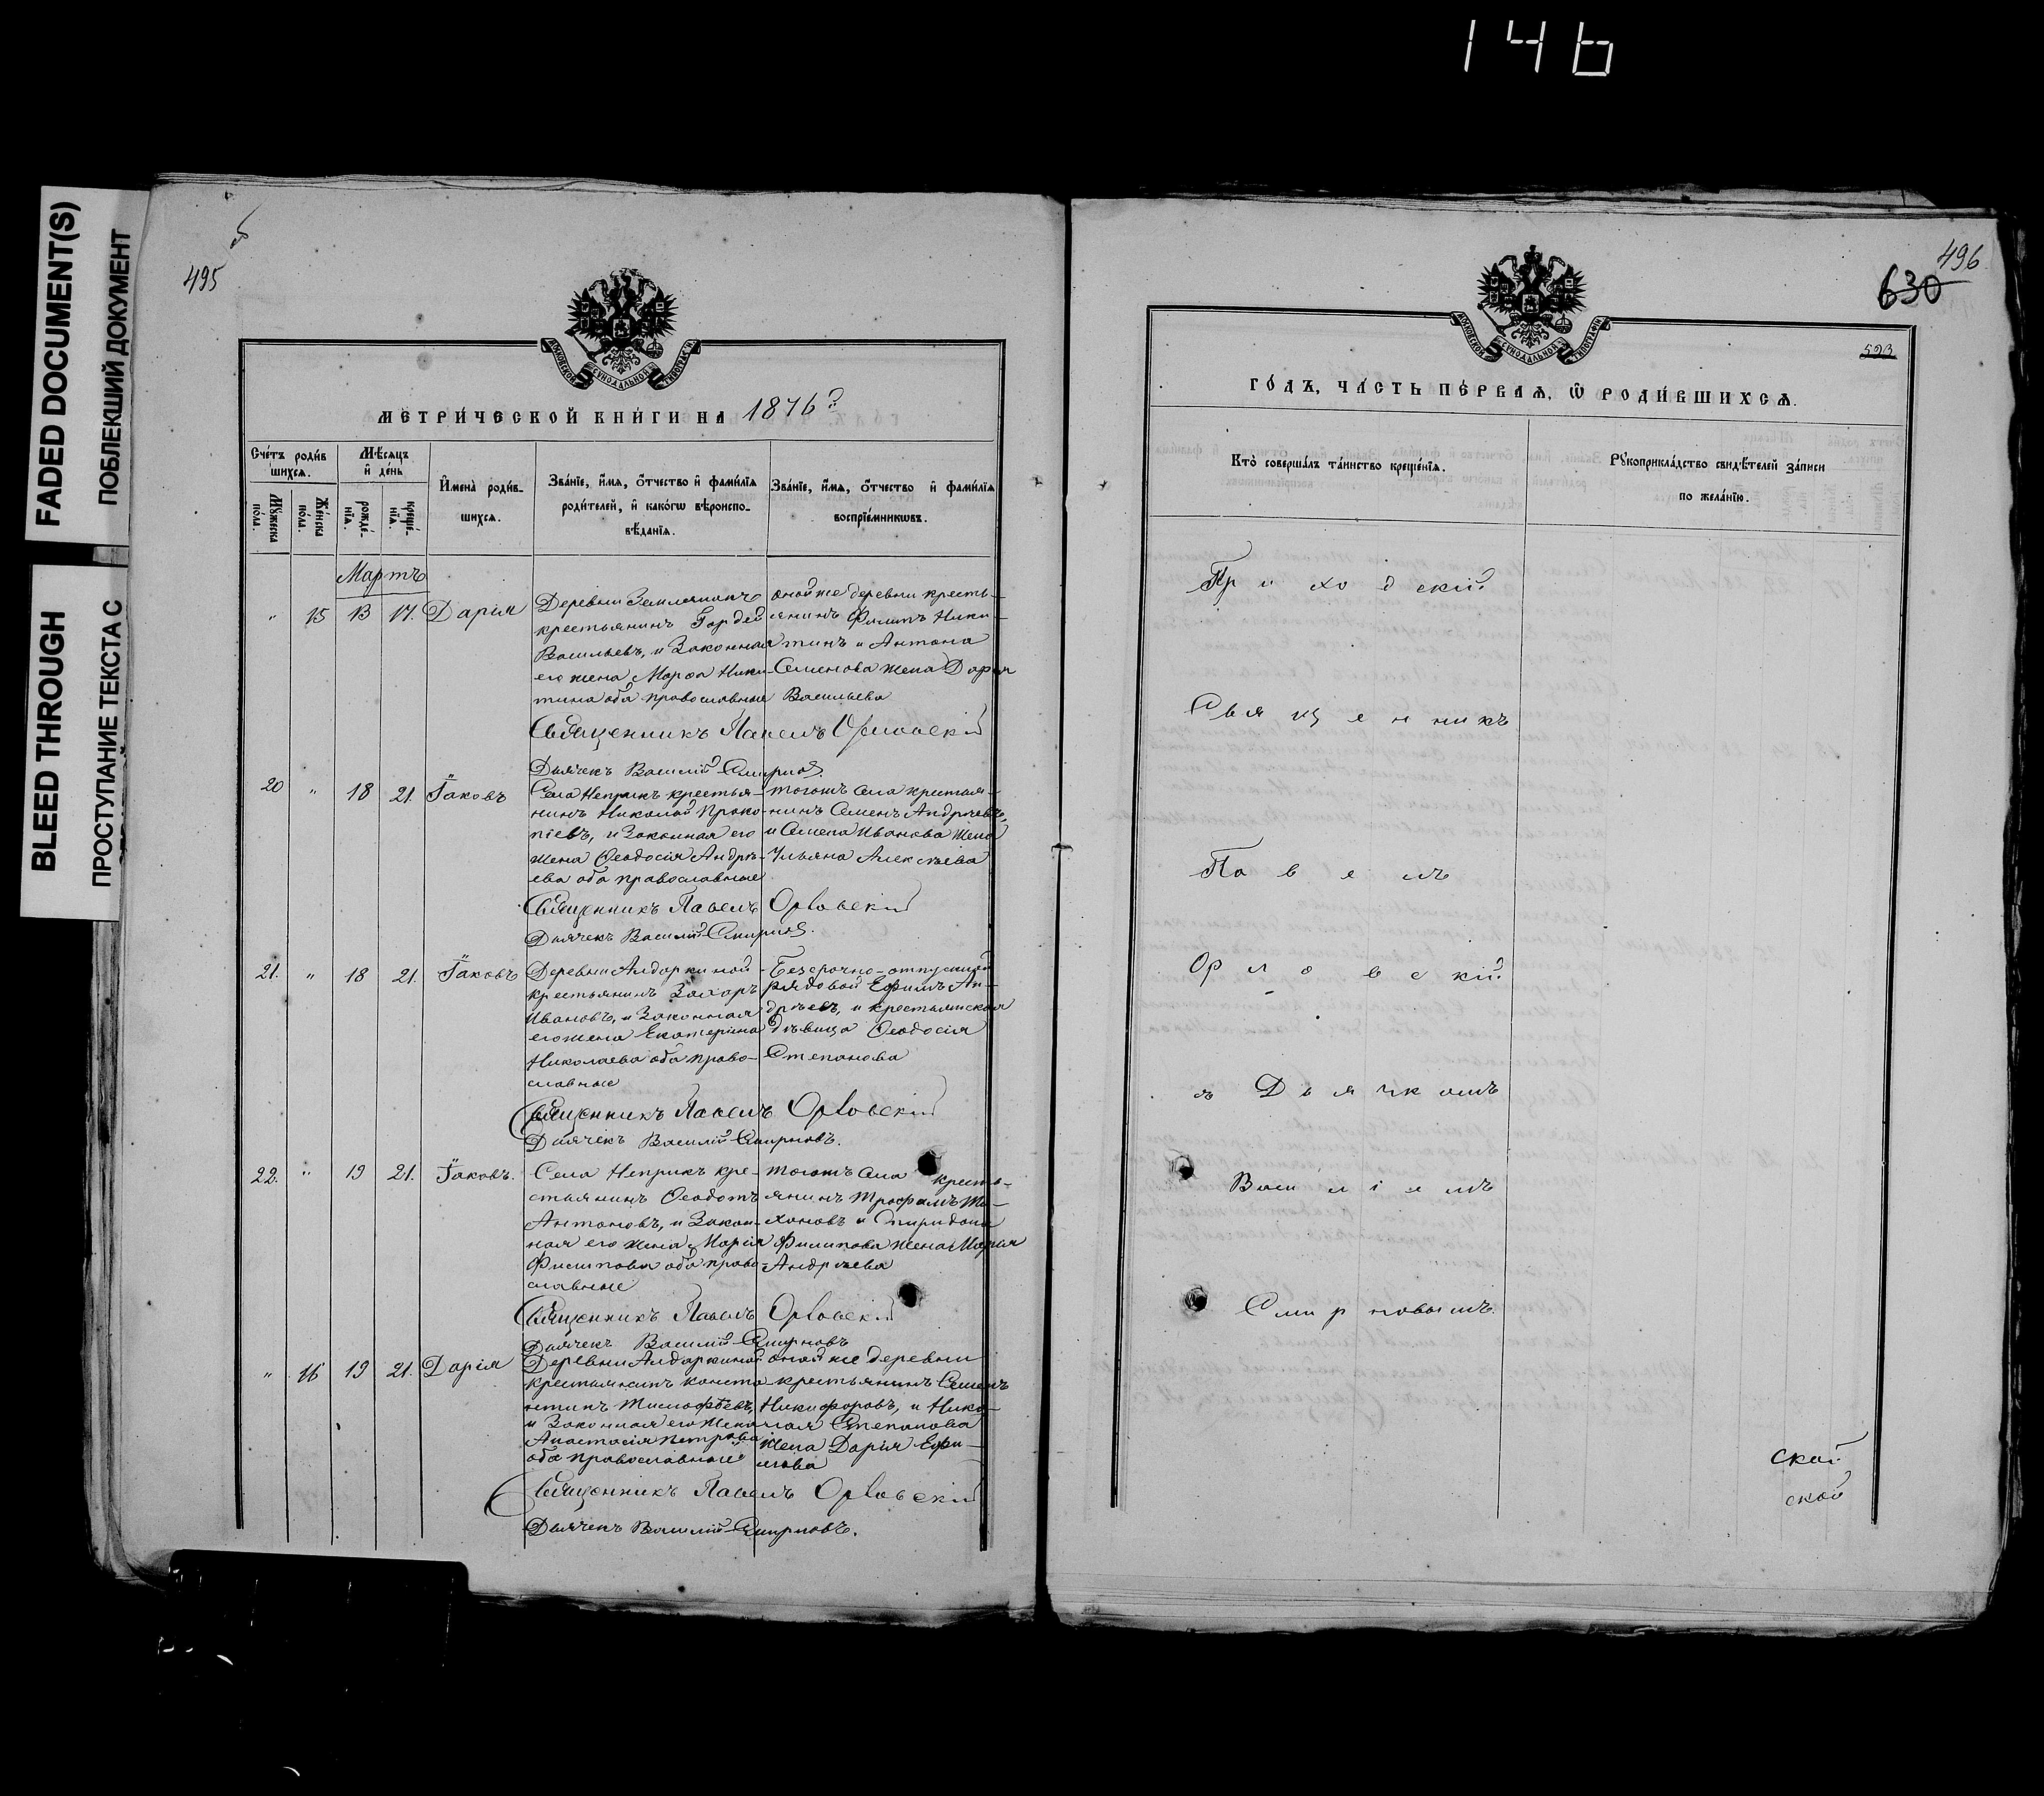 146
FADED DOCUMENT(S)
ПОБЛЕКШИЙ ДОКУМЕНТ
BLEED THROUGH
ПРОСТУПАНИЕ ТЕКСТА С
495
МЕТРИ́ЧЕСКОЙ КНИ́ГИ НА 1876
Сче́тъ роди́в
шихся.
Мѣ́сяцъ
и҆ де́нь
Му́жеска
по́ла.
Же́нска
по́ла.
рожде́-
нїя.
креще́-
нїя.
И҆мена̀ роди́в-
шихся.
Зва́нїе, и҆́мя, ѻ҆́тчество и҆ фами́лїя
роди́телей, и҆ како́гѡ вѣроиспо-
вѣ́данїя.
Зва́нїе, и҆́мя, ѻ҆́тчество и҆ фами́лїя
воспрїе́мникѡвъ.
Мартъ
" 15 13 17. Дарія
Деревни Землянокъ
крестьянинъ Гордей
Васильевъ, и Законная
его жена Марѳа Ники-
тина оба православные
оной же деревни кресть-
янинъ Филипъ Ники-
тинъ и Антона
Семенова жена Дарья
Васильева
Священникъ Павелъ Орловскій
Дьячекъ Василій Смирновъ
20 " 18 21. Іаковъ
Села Неприкъ крестья-
нинъ Николай Проко-
піевъ, и Законная его
жена Ѳеодосія Андрѣ-
ева оба православные
тогожъ села крестья-
нинъ Семенъ Андреевъ,
и Семена Иванова жена
Ульяна Алексѣева
Священникъ Павелъ Орловскій
Дьячекъ Василій Смирновъ.
21. " 18 21. Іаковъ
Деревни Алдаркиной
крестьянинъ Захаръ
Ивановъ, и Законная
его жена Екатерина
Николаева оба право-
славные
Безсрочно-отпускной
рядовой Ефимъ Ан-
дрѣевъ, и крестьянская
дѣвица Ѳеодосія
Степанова
Священникъ Павелъ Орловскій
Дьячекъ Василій Смирновъ.
22. " 19 21. Іаковъ.
Села Неприкъ кре-
стьянинъ Ѳеодотъ
Антоновъ, и Закон-
ная его жена Марія
Филипова оба право-
славные
тогожъ села кресть-
янинъ Трофимъ Ти-
хоновъ и Спиридона
Филипова жена Марія
Андрѣева
Священникъ Павелъ Орловскій
Дьячекъ Василій Смирновъ
" 16 19 21. Дарія
Деревни Алдаркиной
крестьянинъ Конста
нтинъ Тимофѣевъ,
и Законная его жена
Анастасія Петрова
оба православные
оной же деревни
крестьянинъ Семенъ
Никифоровъ, и Нико-
лая Степанова
жена Дарія Ефи-
мова
Священникъ Павелъ Орловскій
Дьячекъ Василій Смирновъ.
496
630
523
ГО́ДЪ, ЧА́СТЬ ПЕ́РВАЯ, Ѿ РОДИ́ВШИХСЯ.
Кто̀ соверша́лъ та́инство креще́нїя.
Рꙋкоприкла́дство свидѣ́телей за́писи
по жела́нїю.
Приходскій
Священникъ
Павелъ
Орловскій
съ Дьячкомъ
Василіемъ
Смирновымъ.
ской
ской